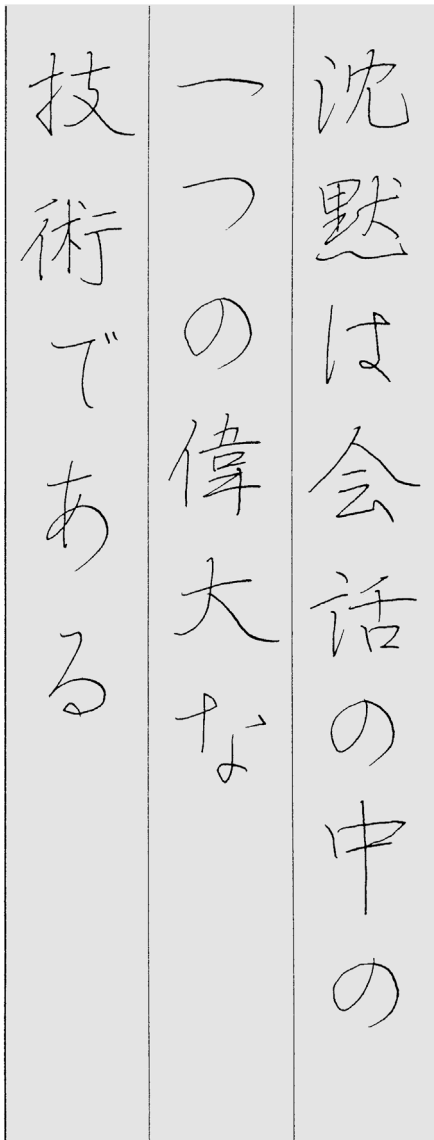 沈黙は会話の中の
一つの偉大な
技術である